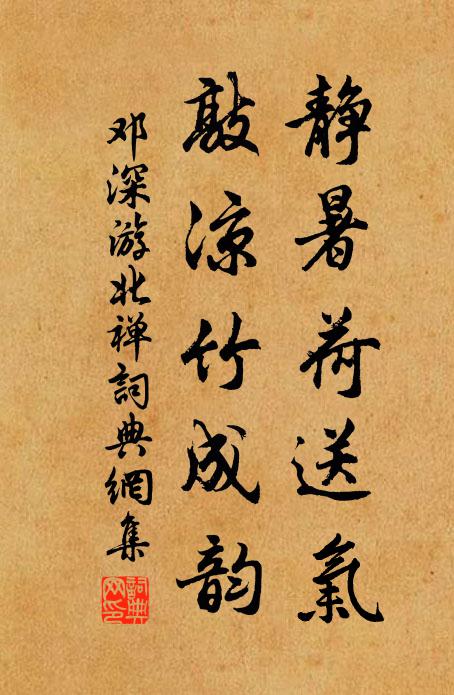 静暑荷送氣
敲凉竹成韵
邓深游北禅詞典網集
詞典網印